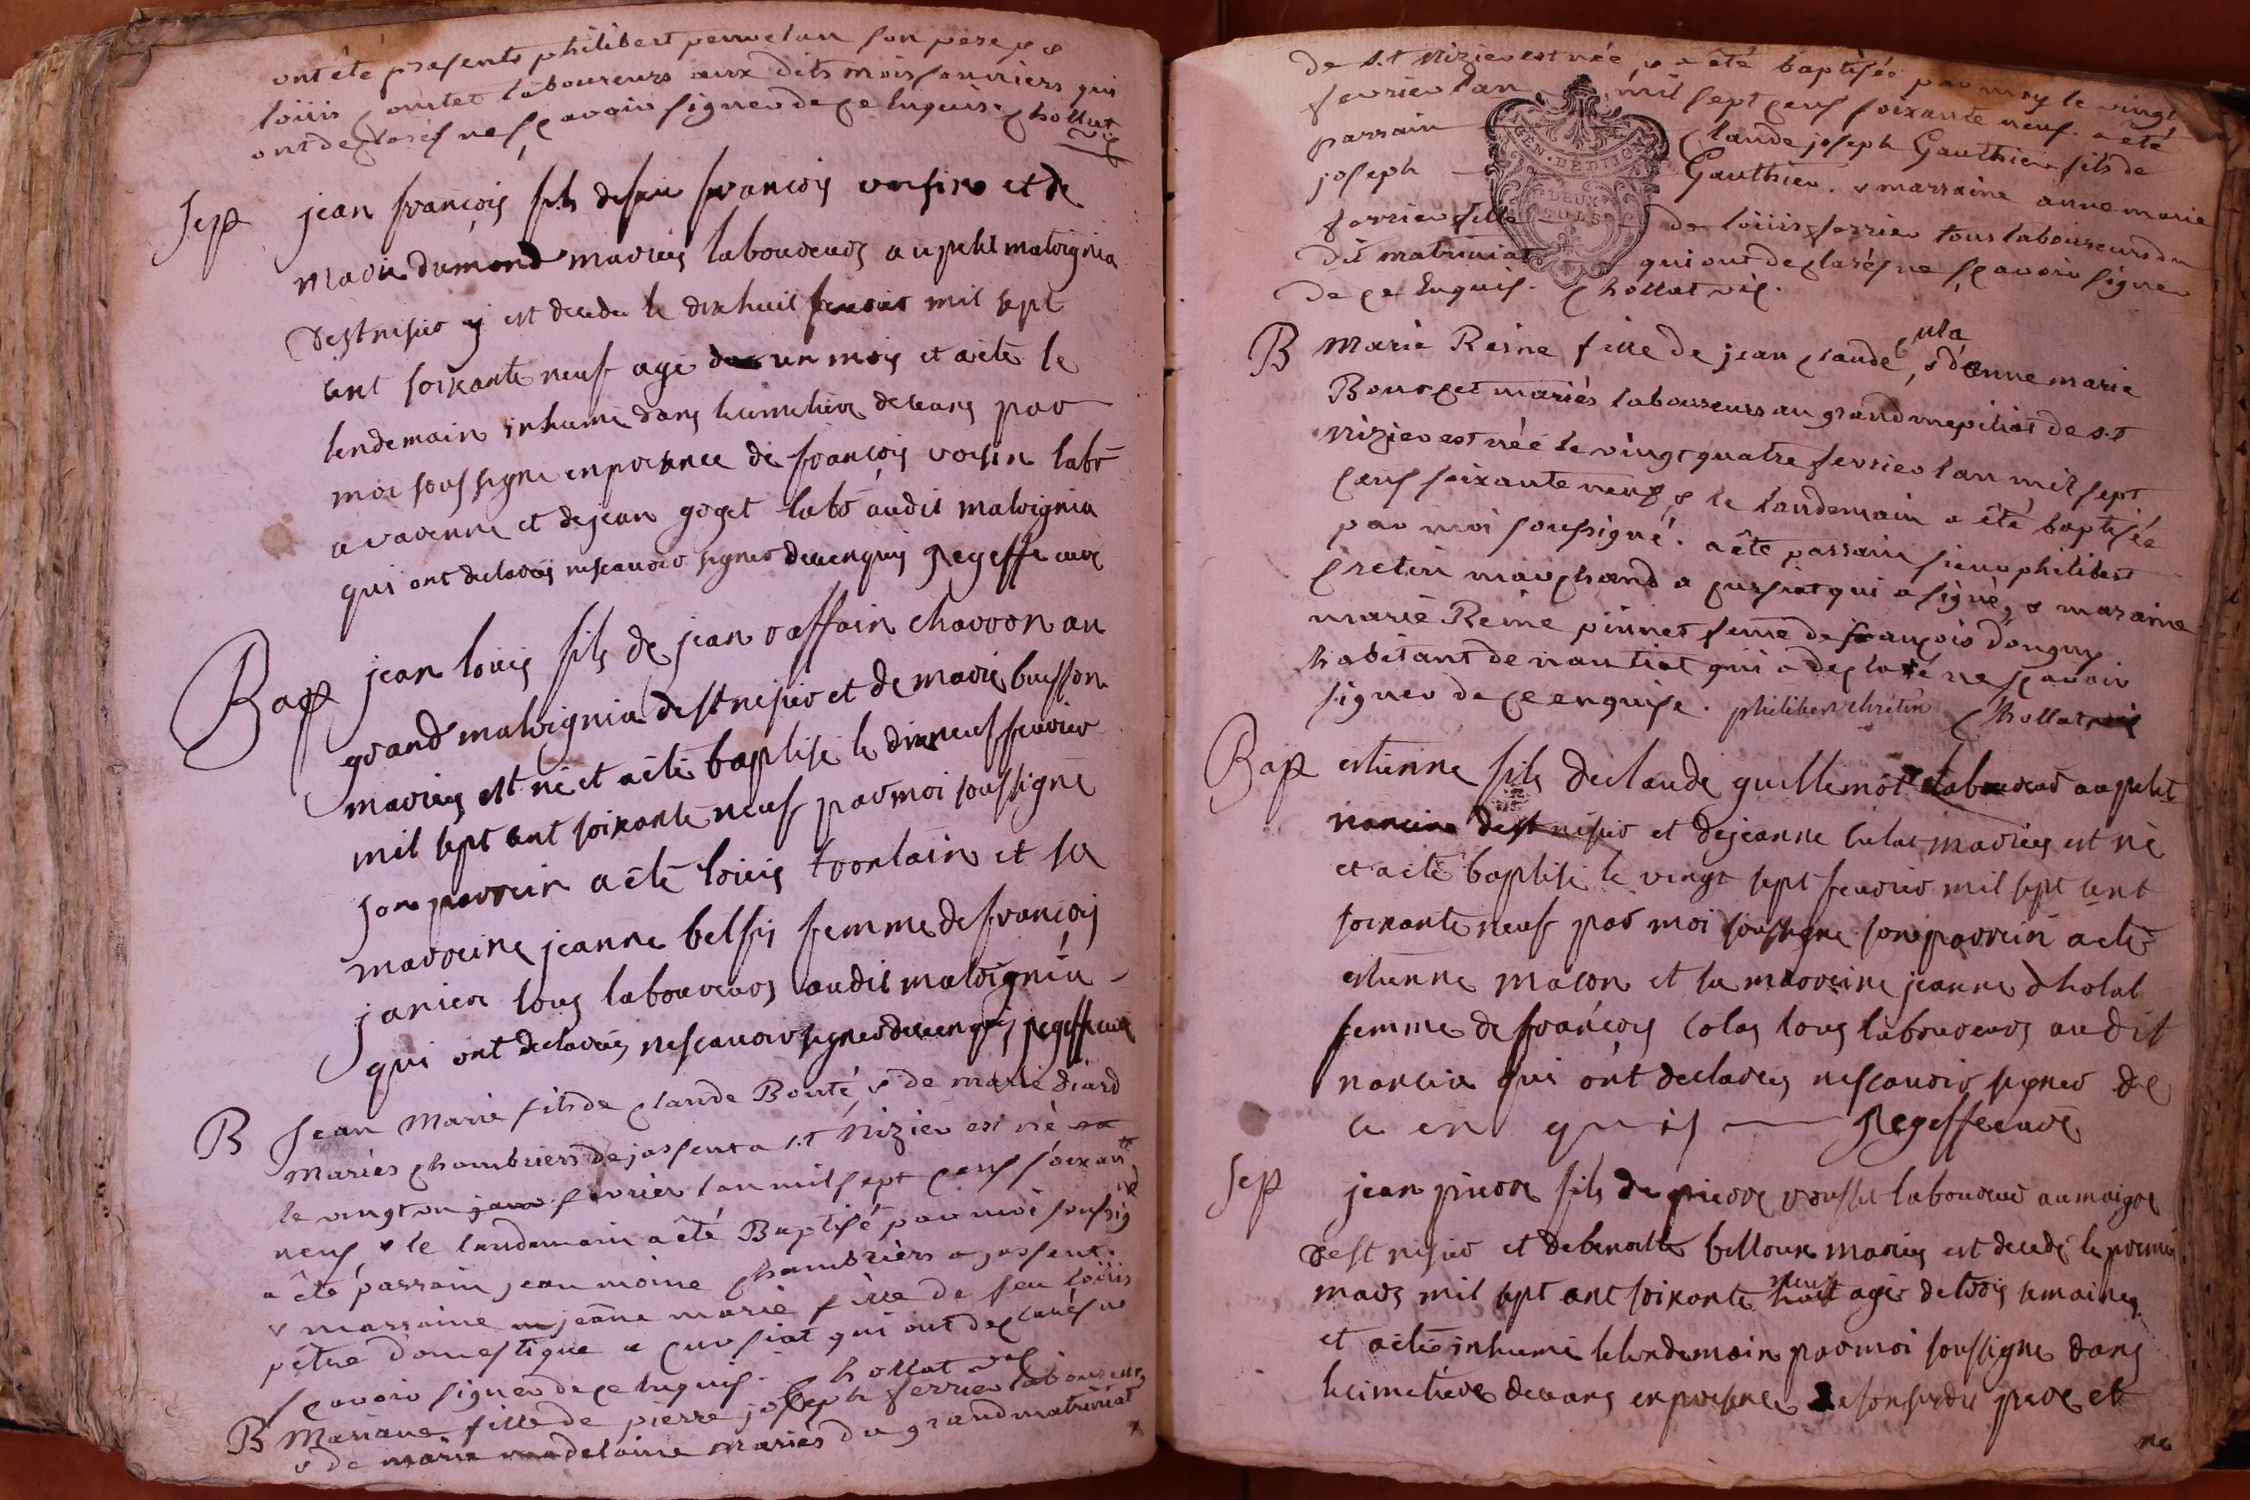 ont été presents philibert son pere &
loüis laboureurs aux dits moissonniers qui
ont declarés ne sçavoir signer de ce enquis. chollat vic
Sep jean françois fils de feu françois voisin et de
marie dumond mariés laboureurs au petit malvignia
de st nisier y est decede le dix huit fevrier mil sept
cent soixante neuf agé de un mois et a été le
lendemain inhumé dans le cimetiere de ceans par
moi soussigné en presence de françois voisin labr
a varenne et de jean goget labr audit malvignia
qui ont declarés ne scavoir signer de ce enquis regeffe curé
Bap jean louis fils de jean raffain charron au
grand malvignia de st nisier et de marie buisson
mariés est né et a été baptisé le dix neuf fevrier
mil sept cent soixante neuf par moi soussigné
son parrein a été louis et sa
marreine jeanne femme de françois
janier tous laboureurs audit malvignia
qui ont declarés ne scavoir signer de ce enquis regeffe curé
B Jean Marie fils de claude Bouté, & de marie diard
mariés chambriers de jassent a s.t Nizier est né
le vingt un fevrier l'an mil sept cens soixante
neuf & le landemain a été Baptisé par moi soussigné
a été parrain jean moine chambriers a jassent.
& marraine jeane marie fille de feu loüis
pêtre domestique a cursiat qui ont declarés ne
sçavoir signer de ce enquis. chollat vic
B Mariane fille de pierre joseph ferrier laboureurs
& de marie madelaine mariés du grand matruniat
de s.t Nizier est née, & a été baptisée par moy le vingt
fevrier l'an mil sept cens soixante neuf. a été
parrain claude joseph Gauthier fils de
joseph Gauthier. & marraine anne marie
ferrier fille de loüis ferrier tous laboureurs du
dit matruniat qui ont declarés ne sçavoir signer
de ce enquis. chollat vic.
GEN. DE DIJON
DEUX
SOLS
B Marie Reine fille de jean claude, & d'anne marie
Bourcet mariés laboureurs au grand de s.t
Nizier est née le vingt quatre fevrier l'an mil sept
cens soixante neuf, & le landemain a été baptisée
par moi soussigné. a été parrain sieur philibert
cretin marchand a cursiat qui a signé, & maraine
marie Reine pinnet feme de françois donguy
habitant de nantiat qui a declaré ne sçavoir
signer de ce enquise. philibert chrétin chollat vic
Bap estienne fils de claude guillemot laboureur au petit
nancia de st nisier et de jeanne mariés est né
et a été baptisé le vingt sept fevrier mil sept cent
soixante neuf par moi soussigné son parrein a été
estienne macon et sa marreine jeanne chollat
femme de françois colas tous laboureurs audit
nancia qui ont declarés ne scavoir signer de
ce en quis regeffe curé
Sep jean pierre fils de pierre laboureur au maigre
de st nisier et de benoitte belloux mariés est decedé le premier
mars mil sept cent soixante neuf agé de trois semaines
et a été inhumé le lendemain par moi soussigné dans
le cimetiere de ceans en presence de son susdit pere et